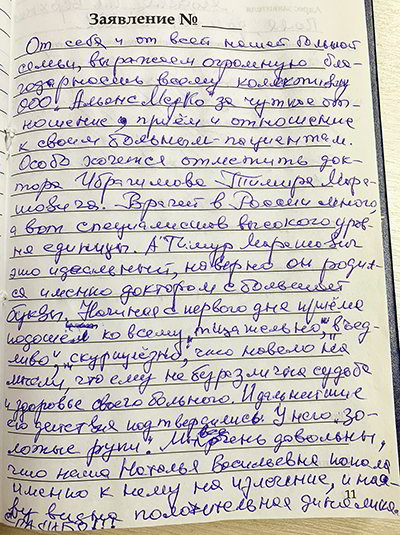 Заявление №
От себя и от всей нашей большой
семьи, выражаем огромную бла-
годарность всему коллективу
ООО. АльянсМедКо" за чуткое от-
ношение, приём и отношение
к своим больным-пациентам.
Особо хочется отметить док-
тора Ибрагимова Тимура Мура-
товича. Врачей в России много
а вот специалистов высокого уров-
ня единицы. А Тимур Муратович
это идеальный, наверно он родил-
ся именно доктором с большой
буквы. Начиная с первого дня приёма
подошёл ко всему "тщательно", "въед-
ливо", "скурпулёзно", что навело на
мысли, что ему не безразлична судьба
и здоровье своего больного. И дальнейшие
его действия подтвердились. У него "зо-
лотые руки". Мы очень довольны,
что наша Наталья Васильевна попала
именно к нему на излечение, и на-
11
видна положительная динамика.
СПАСИБО!!!